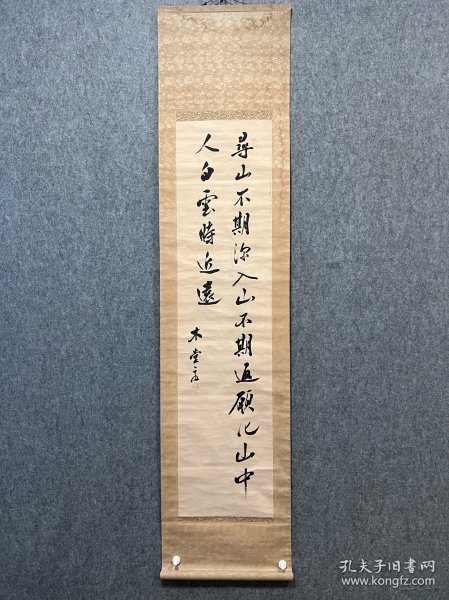 尋山不期深入山不期返願化山中
人白雲時近遠
木堂
孔夫子旧书网
www.kongfz.com